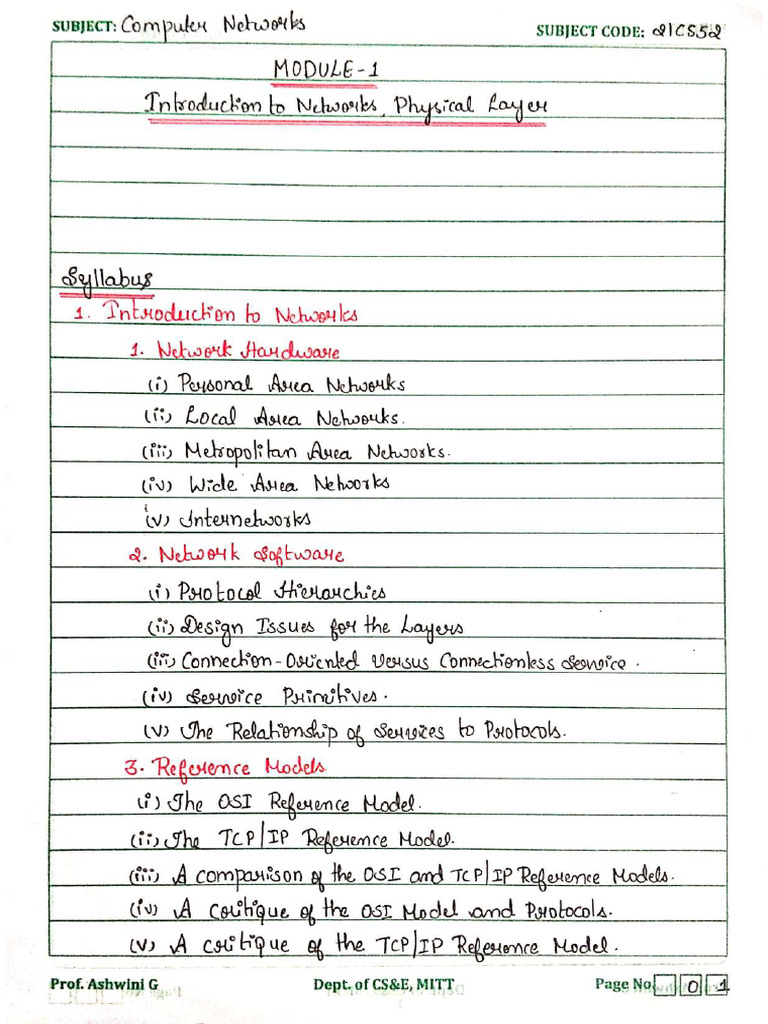 SUBJECT: Computer Networks SUBJECT CODE: 21CS52
MODULE-1
Introduction to Networks, Physical Layer
Syllabus
1. Introduction to Networks
1. Network Hardware
(i) Personal Area Networks
(ii) Local Area Networks.
(iii) Metropolitan Area Networks.
(iv) Wide Area Networks
(v) Internetworks
2. Network Software
(i) Protocol Hierarchies
(ii) Design Issues for the Layers
(iii) Connection-Oriented Versus Connectionless Service.
(iv) Service Primitives.
(v) The Relationship of Services to Protocols.
3. Reference Models
(i) The OSI Reference Model.
(ii) The TCP/IP Reference Model.
(iii) A comparison of the OSI and TCP/IP Reference Models.
(iv) A critique of the OSI Model and Protocols.
(v) A critique of the TCP/IP Reference Model.
Prof. Ashwini G Dept. of CS&E, MITT Page No. 0 1